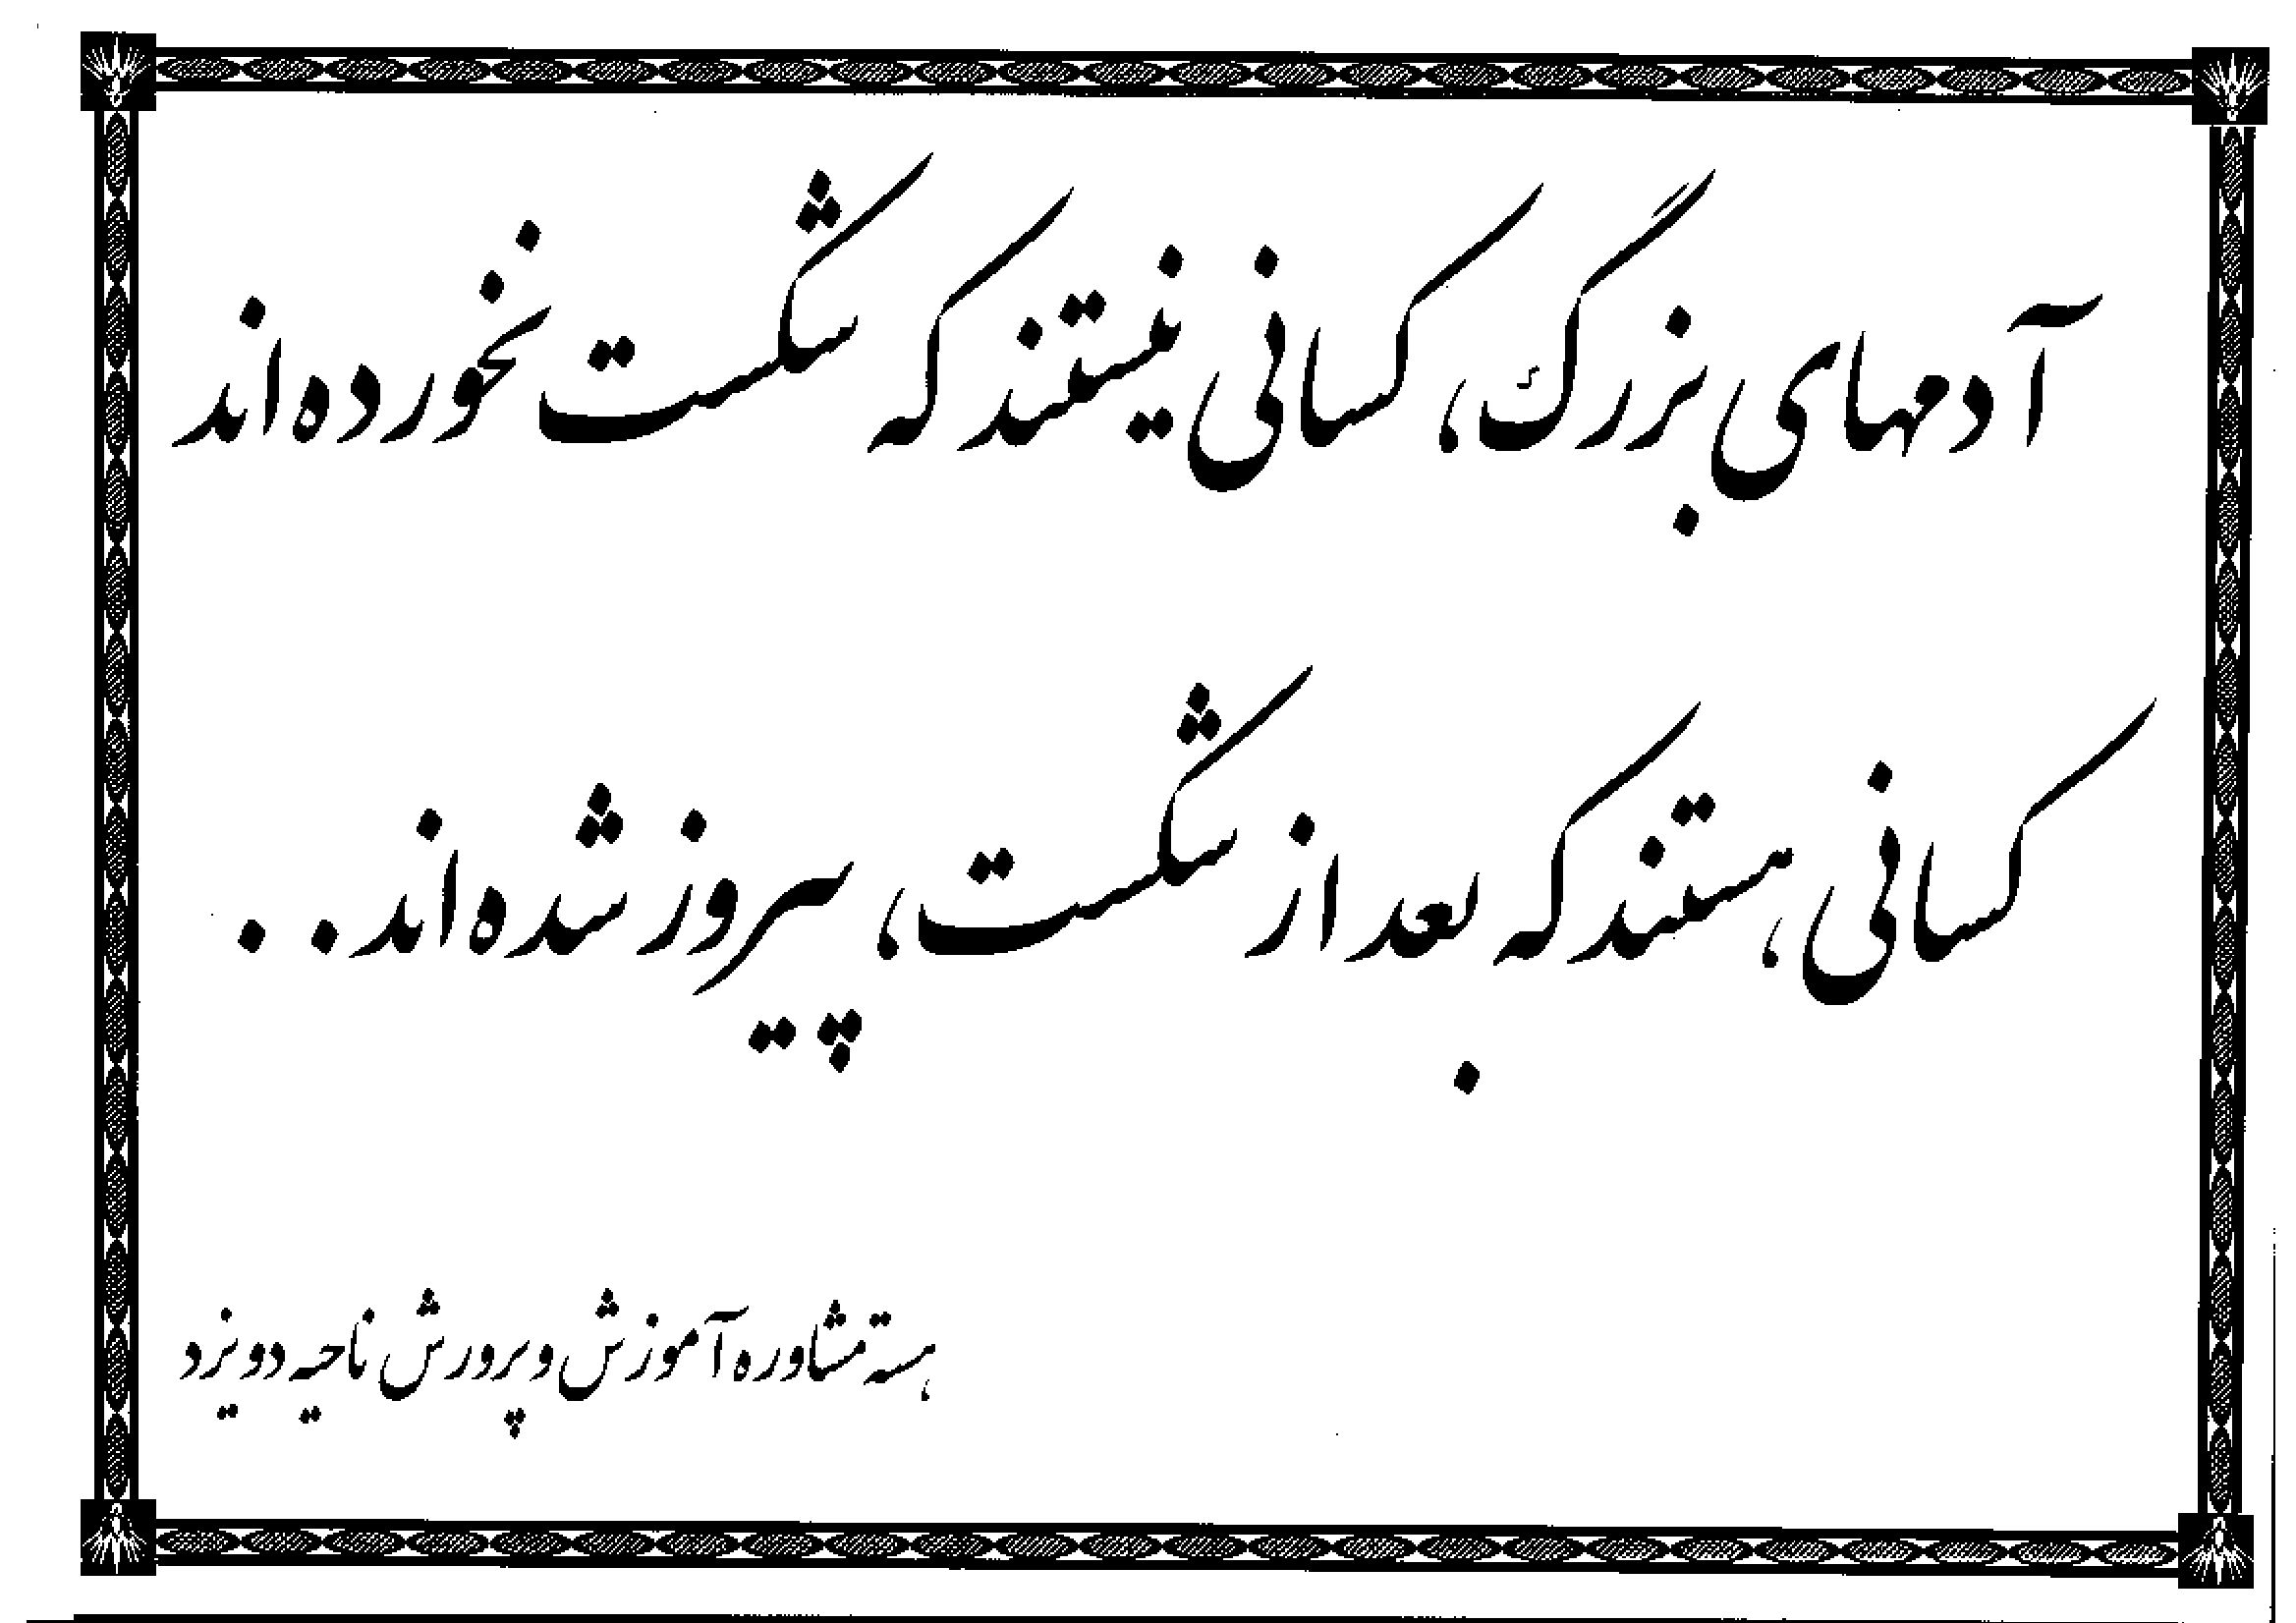 آدمهای بزرگ، کسانی نیستند که شکست نخورده اند
کسانی هستند که بعد از شکست، پیروز شده اند..
هسته مشاوره آموزش و پرورش ناحیه دو یزد